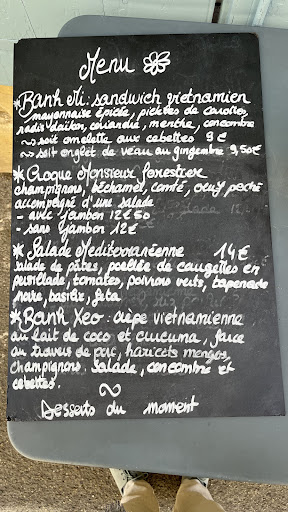 Menu
*Banh Mi : sandwich vietnamien
mayonnaise épicée, pickles de carottes,
radis daïkon, coriandre, menthe, concombre
~ soit omelette aux cebettes 9€
~ soit onglet de veau au gingembre 9,50€
*Croque Monsieur forestier
champignons, béchamel, comté, oeuf poché
accompagné d'une salade
- avec jambon 12€50
- sans jambon 12€
*Salade Méditerranéenne 14€
salade de pâtes, poêlée de courgettes en
persillade, tomates, poivrons verts, tapenade
noire, basilic, feta
*Banh Xeo : crêpe vietnamienne
au lait de coco et curcuma, farce
au travers de porc, haricots mungos,
champignons, salade, concombre et
cebettes.
~
Desserts du moment